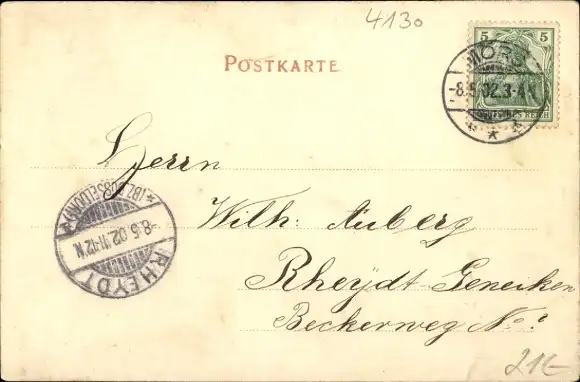 4130
POSTKARTE
5 5
DEUTSCHES REICH
MÖRS
-8.5.02.3-4
Herrn
Wilh: Auberg
Rheydt-Geneiken
Beckerweg No:
(BZ. DÜSSELDORF)
-8.5.02.11-12N
RHEYDT
21E